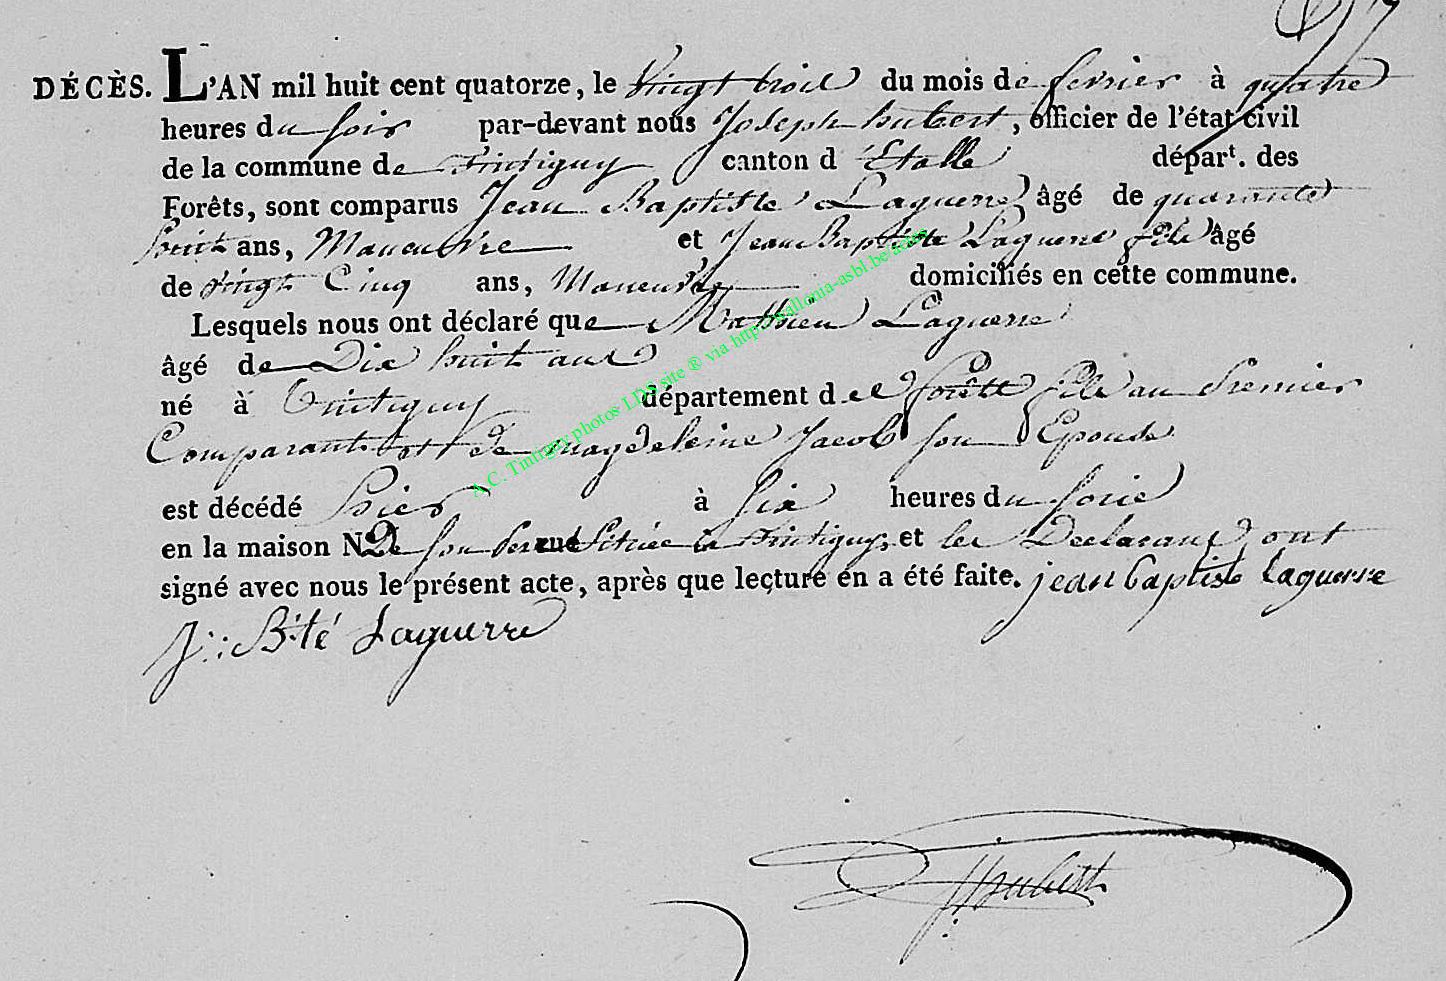 DÉCÈS. L'AN mil huit cent quatorze, le Vingt trois du mois de fevrier à quatre
heures du soir par-devant nous Joseph hubert, officier de l'état civil
de la commune de Tintigny canton d'Etalle départ. des
Forêts, sont comparus Jean Baptiste Laguerre âgé de quarante
huit ans, Maneuvre et Jean Baptiste Laguerre fils âgé
de vingt Cinq ans, Maneuvre domiciliés en cette commune.
Lesquels nous ont déclaré que Mathieu Laguerre
âgé de Dix huit ans
né à Tintigny département des forêts fils au Premier
Comparant et de magdeleine Jacob son Epouse
est décédé hier à six heures du soire
en la maison N de son Pere Située à Tintigny, et les Declarans ont
signé avec nous le présent acte, après que lecture en a été faite. jean baptiste laguerre
J: B.te Laguerre
A.C. Tintigny photos LDS site ® via http://wallonia-asbl.be/actes
J hubert